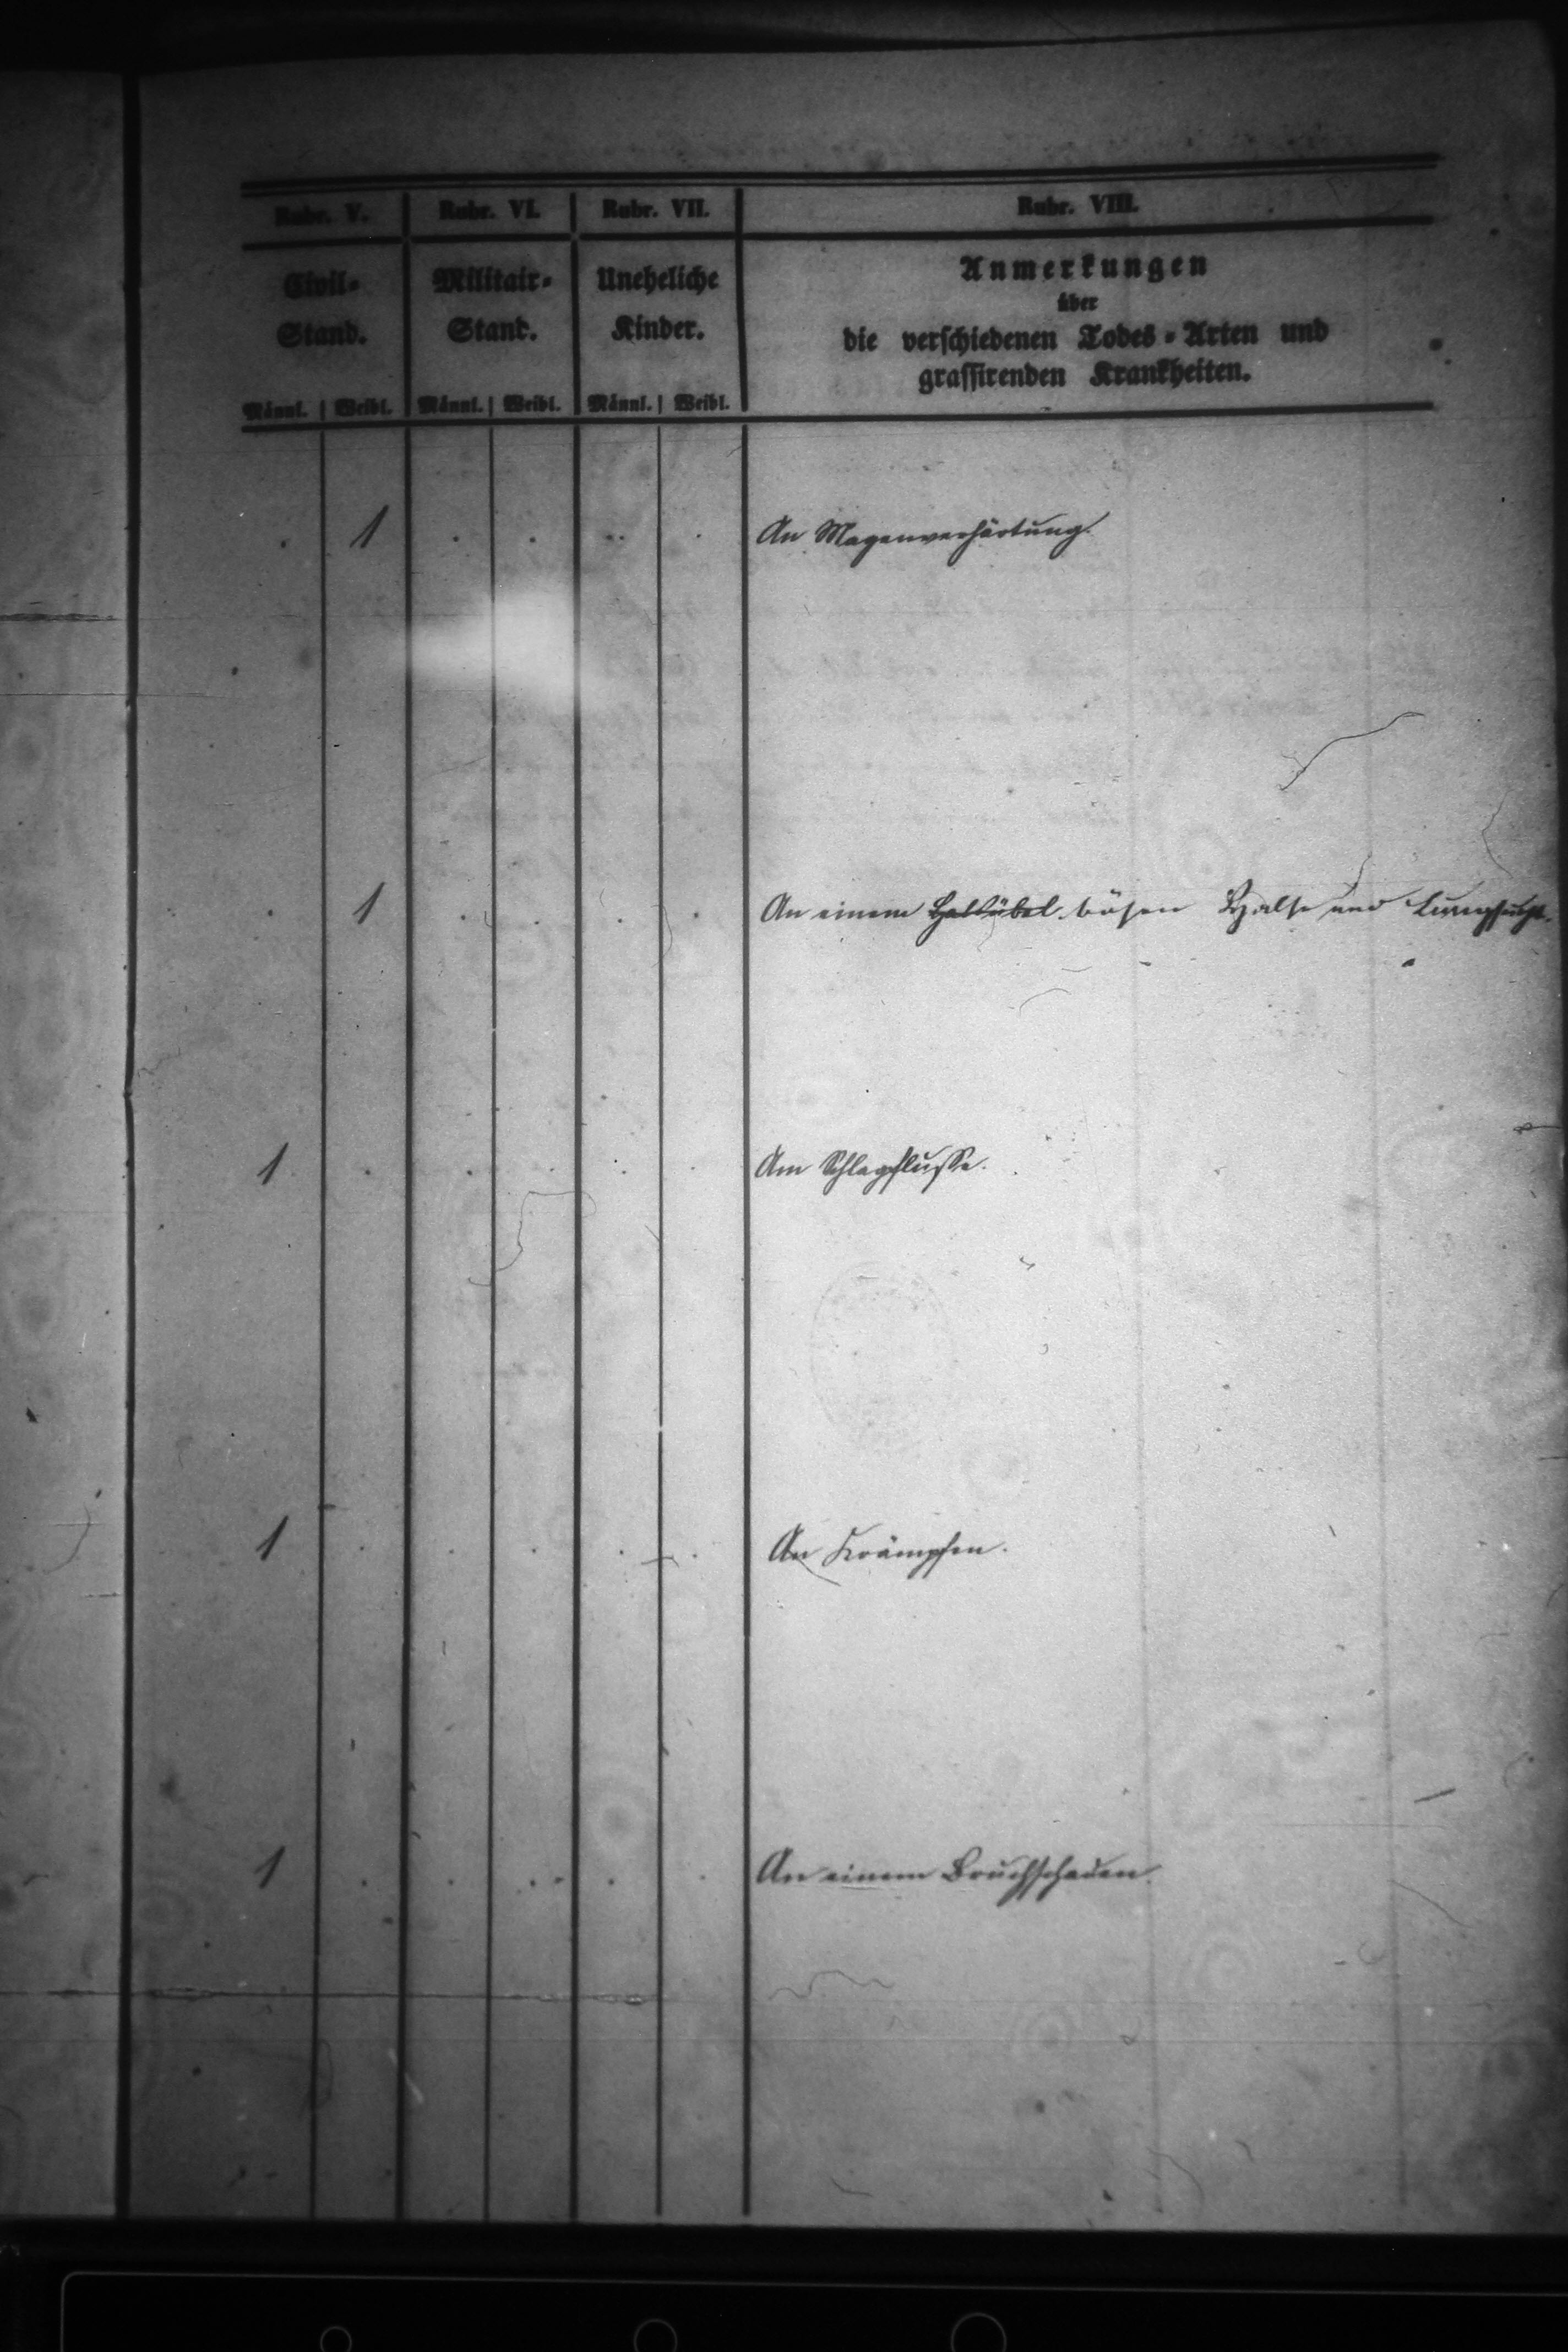 Rubr. V. Rubr. VI. Rubr. VII. Rubr. VIII.
Civil- Militair- Uneheliche Anmerkungen
über
Stand. Stand. Kinder. die verschiedenen Todes-Arten und
grassirenden Krankheiten.
Männl. Weibl. Männl. Weibl. Männl. Weibl.
. 1 . . . . An Magenverhärtung.
. 1 . . . . An einem Halsübel bösen Halse und Lungsucht.
1 . . . . . Am Schlagflusse.
1 . . . . . An Krämpfen.
1 . . . . . An einem Bruchschaden.